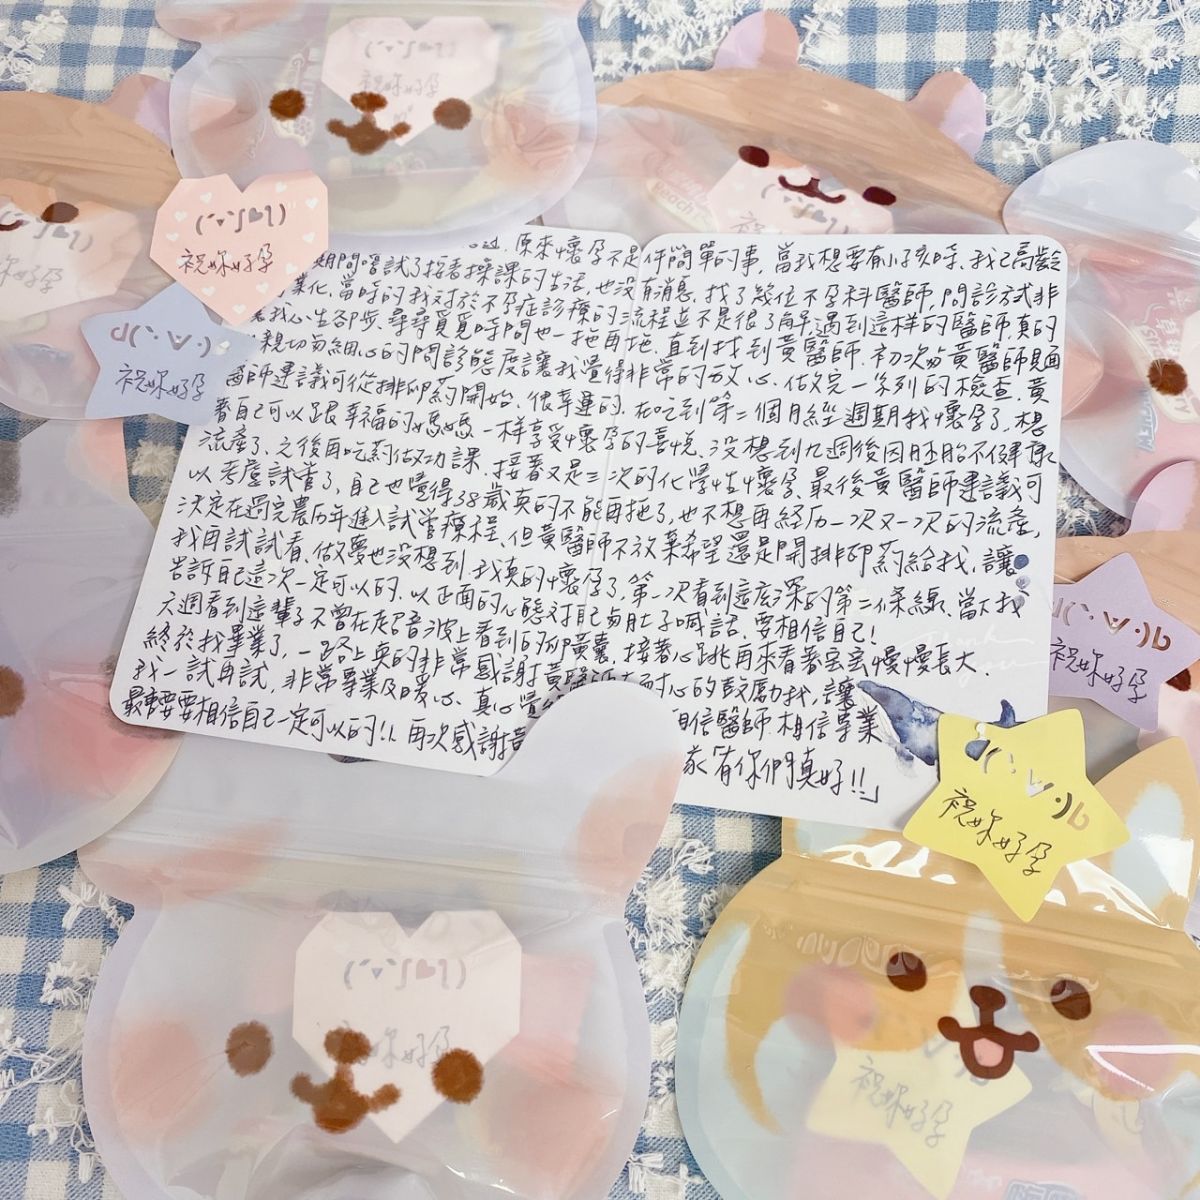 (´▼`ʃ♥ƪ)
祝妳好孕
(´▼`ʃ♥ƪ)
祝妳好孕
d(`･∨･)
祝妳好孕
過，原來懷孕不是件簡單的事，當我想要有小孩時，我已高齡
期間嚐試了接著操課的生活，也沒有消息，找了幾位不孕科醫師，問診方式非
業化，當時的我對於不孕症診療的流程並不是很了解，遇到這樣的醫師，真的
我心生卻步，尋尋覓覓時間也一拖再拖，直到找到黃醫師，初次與黃醫師見面
親切與細心的問診態度讓我覺得非常的放心，做完一系列的檢查，黃
醫師建議可從排卵藥開始，很幸運的，在吃到第二個月經週期我懷孕了，想
著自己可以跟幸福的媽媽一樣享受懷孕的喜悅，沒想到九週後因胚胎不健康
流產了，之後再吃藥做功課，接著又是三次的化學性懷孕，最後黃醫師建議可
以考慮試管了，自己也覺得38歲真的不能再拖了，也不想再經歷一次又一次的流產，
決定在過完農历年進入試管療程，但黃醫師不放棄希望還是開排卵藥給我，讓
我再試試看，做夢也沒想到，我真的懷孕了，第一次看到這麼深的第二條線，當下我
告訴自己這次一定可以的，以正面的心態对自己與肚子喊話，要相信自己！
六週看到這輩子不曾在超音波上看到的卵黃囊，接著心跳再來看著宝宝慢慢長大
終於找畢業了，一路上真的非常感謝黃醫師有耐心的鼓勵我，讓
我一試再試，非常專業及暖心，真心覺
相信醫師，相信專業
最重要要相信自己一定可以的!! 再次感謝
家「有你們真好!!」
Thank you
d(`･∨･)b
祝妳好孕
(`･∨･)b
祝妳好孕
(´▼`ʃ♥ƪ)
妳好孕
祝妳好孕